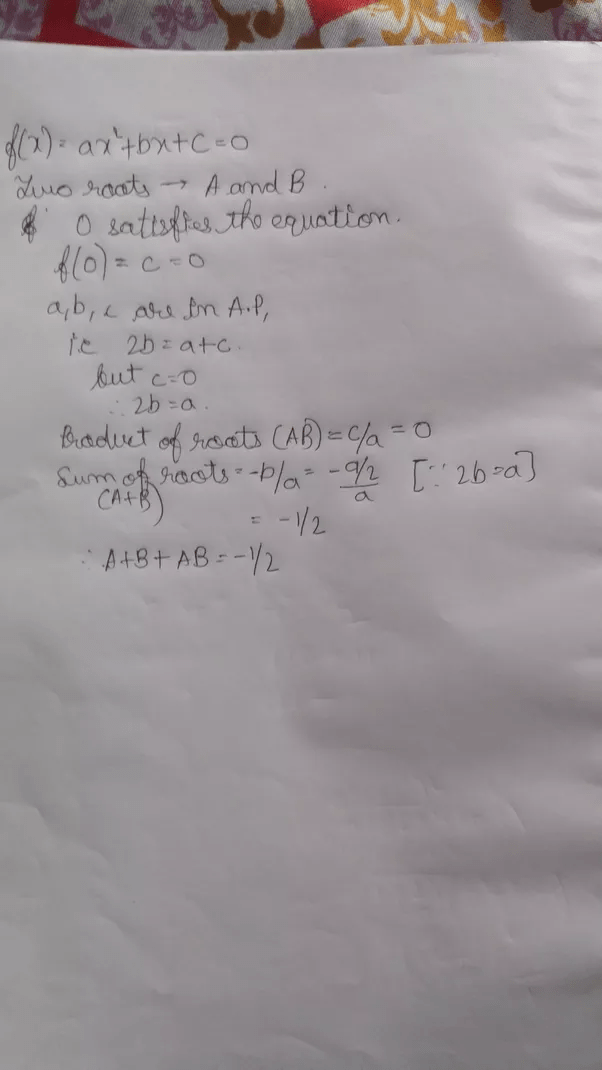 f(x) = ax²+bx+c=0
Two roots → A and B.
0 satisfies the equation.
f(0) = c = 0
a, b, c are in A.P,
i.e 2b = a+c.
but c=0
∴ 2b = a.
Product of roots (AB) = c/a = 0
Sum of roots = -b/a = -a/2/a [∵ 2b=a]
(A+B)
= -1/2
∴ A+B+AB = -1/2